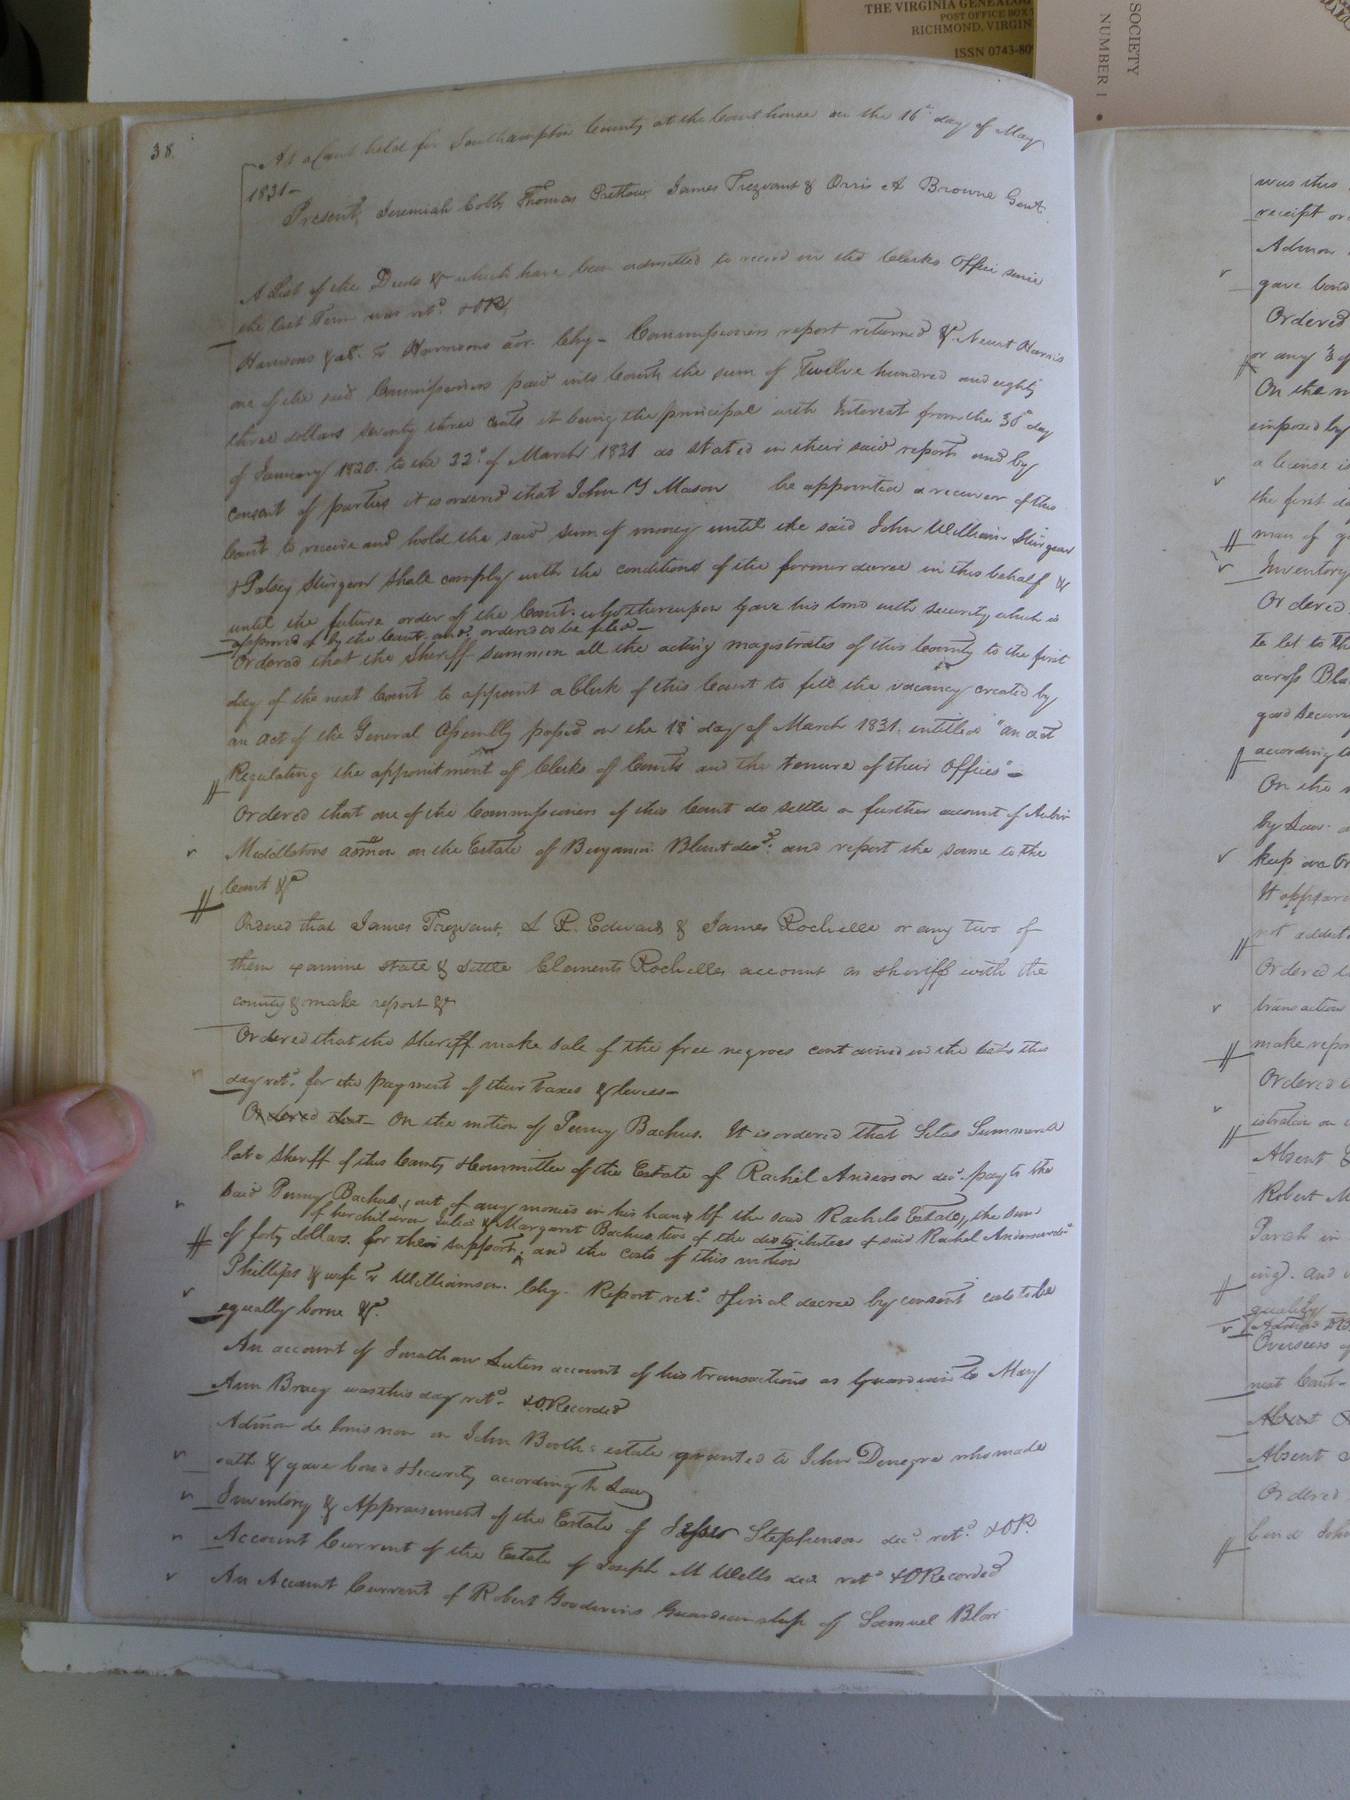 THE VIRGINIA GENEALOG
POST OFFICE BOX
RICHMOND, VIRGIN
ISSN 0743-809
SOCIETY
NUMBER 1
38.
At a Court held for Southampton County at the Court house on the 16th day of May
1831-
Present, Jeremiah Cobb, Thomas Pretlow, James Trezvant & Orris A Browne Gent.
A List of the Deeds &c which have been admitted to record in the Clerks Office since
the last Term was retd. & OR,
Harrisons &al. vs Harrisons &or. Chy- Commissioners report returned & Newit Harris
one of the said Commissioners paid into Court the sum of Twelve hundred and eighty
three dollars seventy three cents it being the principal with Interest from the 30th day
of January 1820. to the 22d. of March 1831 as stated in their said report and by
consent of parties it is ordered that John Y Mason be appointed a receiver of this
Court to receive and hold the said sum of money until the said John William Sturgeon
& Patsey Sturgeon shall comply with the conditions of the former decree in this behalf &
until the future order of the Court. who thereupon gave his bond with security which is
approved of by the Court. and ordered to be filed-
Ordered that the Sheriff summon all the acting magistrates of this County to the first
day of the next Court to appoint a Clerk of this Court to fill the vacancy created by
an act of the General Assembly passed on the 18 day of March 1831. entitled "an act
Regulating the appointment of Clerks of Courts and the tenure of their offices"-
Ordered that one of the Commissioners of this Court do settle a further account of
Middletons admon on the Estate of Benjamin Blunt decd. and report the same to the
Court &c
Ordered that James Trezvant, A P. Edwards & James Rochelle or any two of
them examine state & settle Clements Rochelles account as sheriff with the
county & make report &c
Ordered that the Sheriff make sale of the free negroes contained in the lists this
day retd. for the payment of their taxes & levies-
Ordered that- On the motion of Penny Bachus. It is ordered that Silas Summerell
late Sheriff of this County & Committee of the Estate of Rachel Anderson decd. pay to the
said Penny Bachus, out of any monies in his hands of the said Rachels Estate, the sum
of her children Julia & Margaret Bachus two of the distributees of said Rachel Anderson decd
of forty dollars. for their support, and the costs of this motion
Phillips & wife vs Williamson. Chy- Report retd. & final decree by consent costs to be
equally borne &c.
An account of Jonathan Lutens account of his transactions as Guardian to Mary
Ann Bracy was this day retd. & O.Recorded
Admon de bonis non on John Booths estate granted to John Denegre who made
oath & gave bond & security according to Law
Inventory & Appraisement of the Estate of Stephenson decd. retd. & OR.
Account Current of the Estate of Joseph M Wells decd retd & O Recorded
An Account Current of Robert Goodwins Guardianship of Samuel Blow
was this
receipt or
Admon
gave bond
Ordered
or any 3 of
On the m
imposed by
a license is
the first d
man of g
Inventory
Ordered
to let to th
across Bla
good secur
according t
On the
by Law
keep an Or
It appear
not addict
Ordered
transaction
make repor
Ordered
istration on
Absent
Robert M
Parish in
ing. and
qualify
Overseers of
next Court-
Absent
Absent
Ordered
bind John